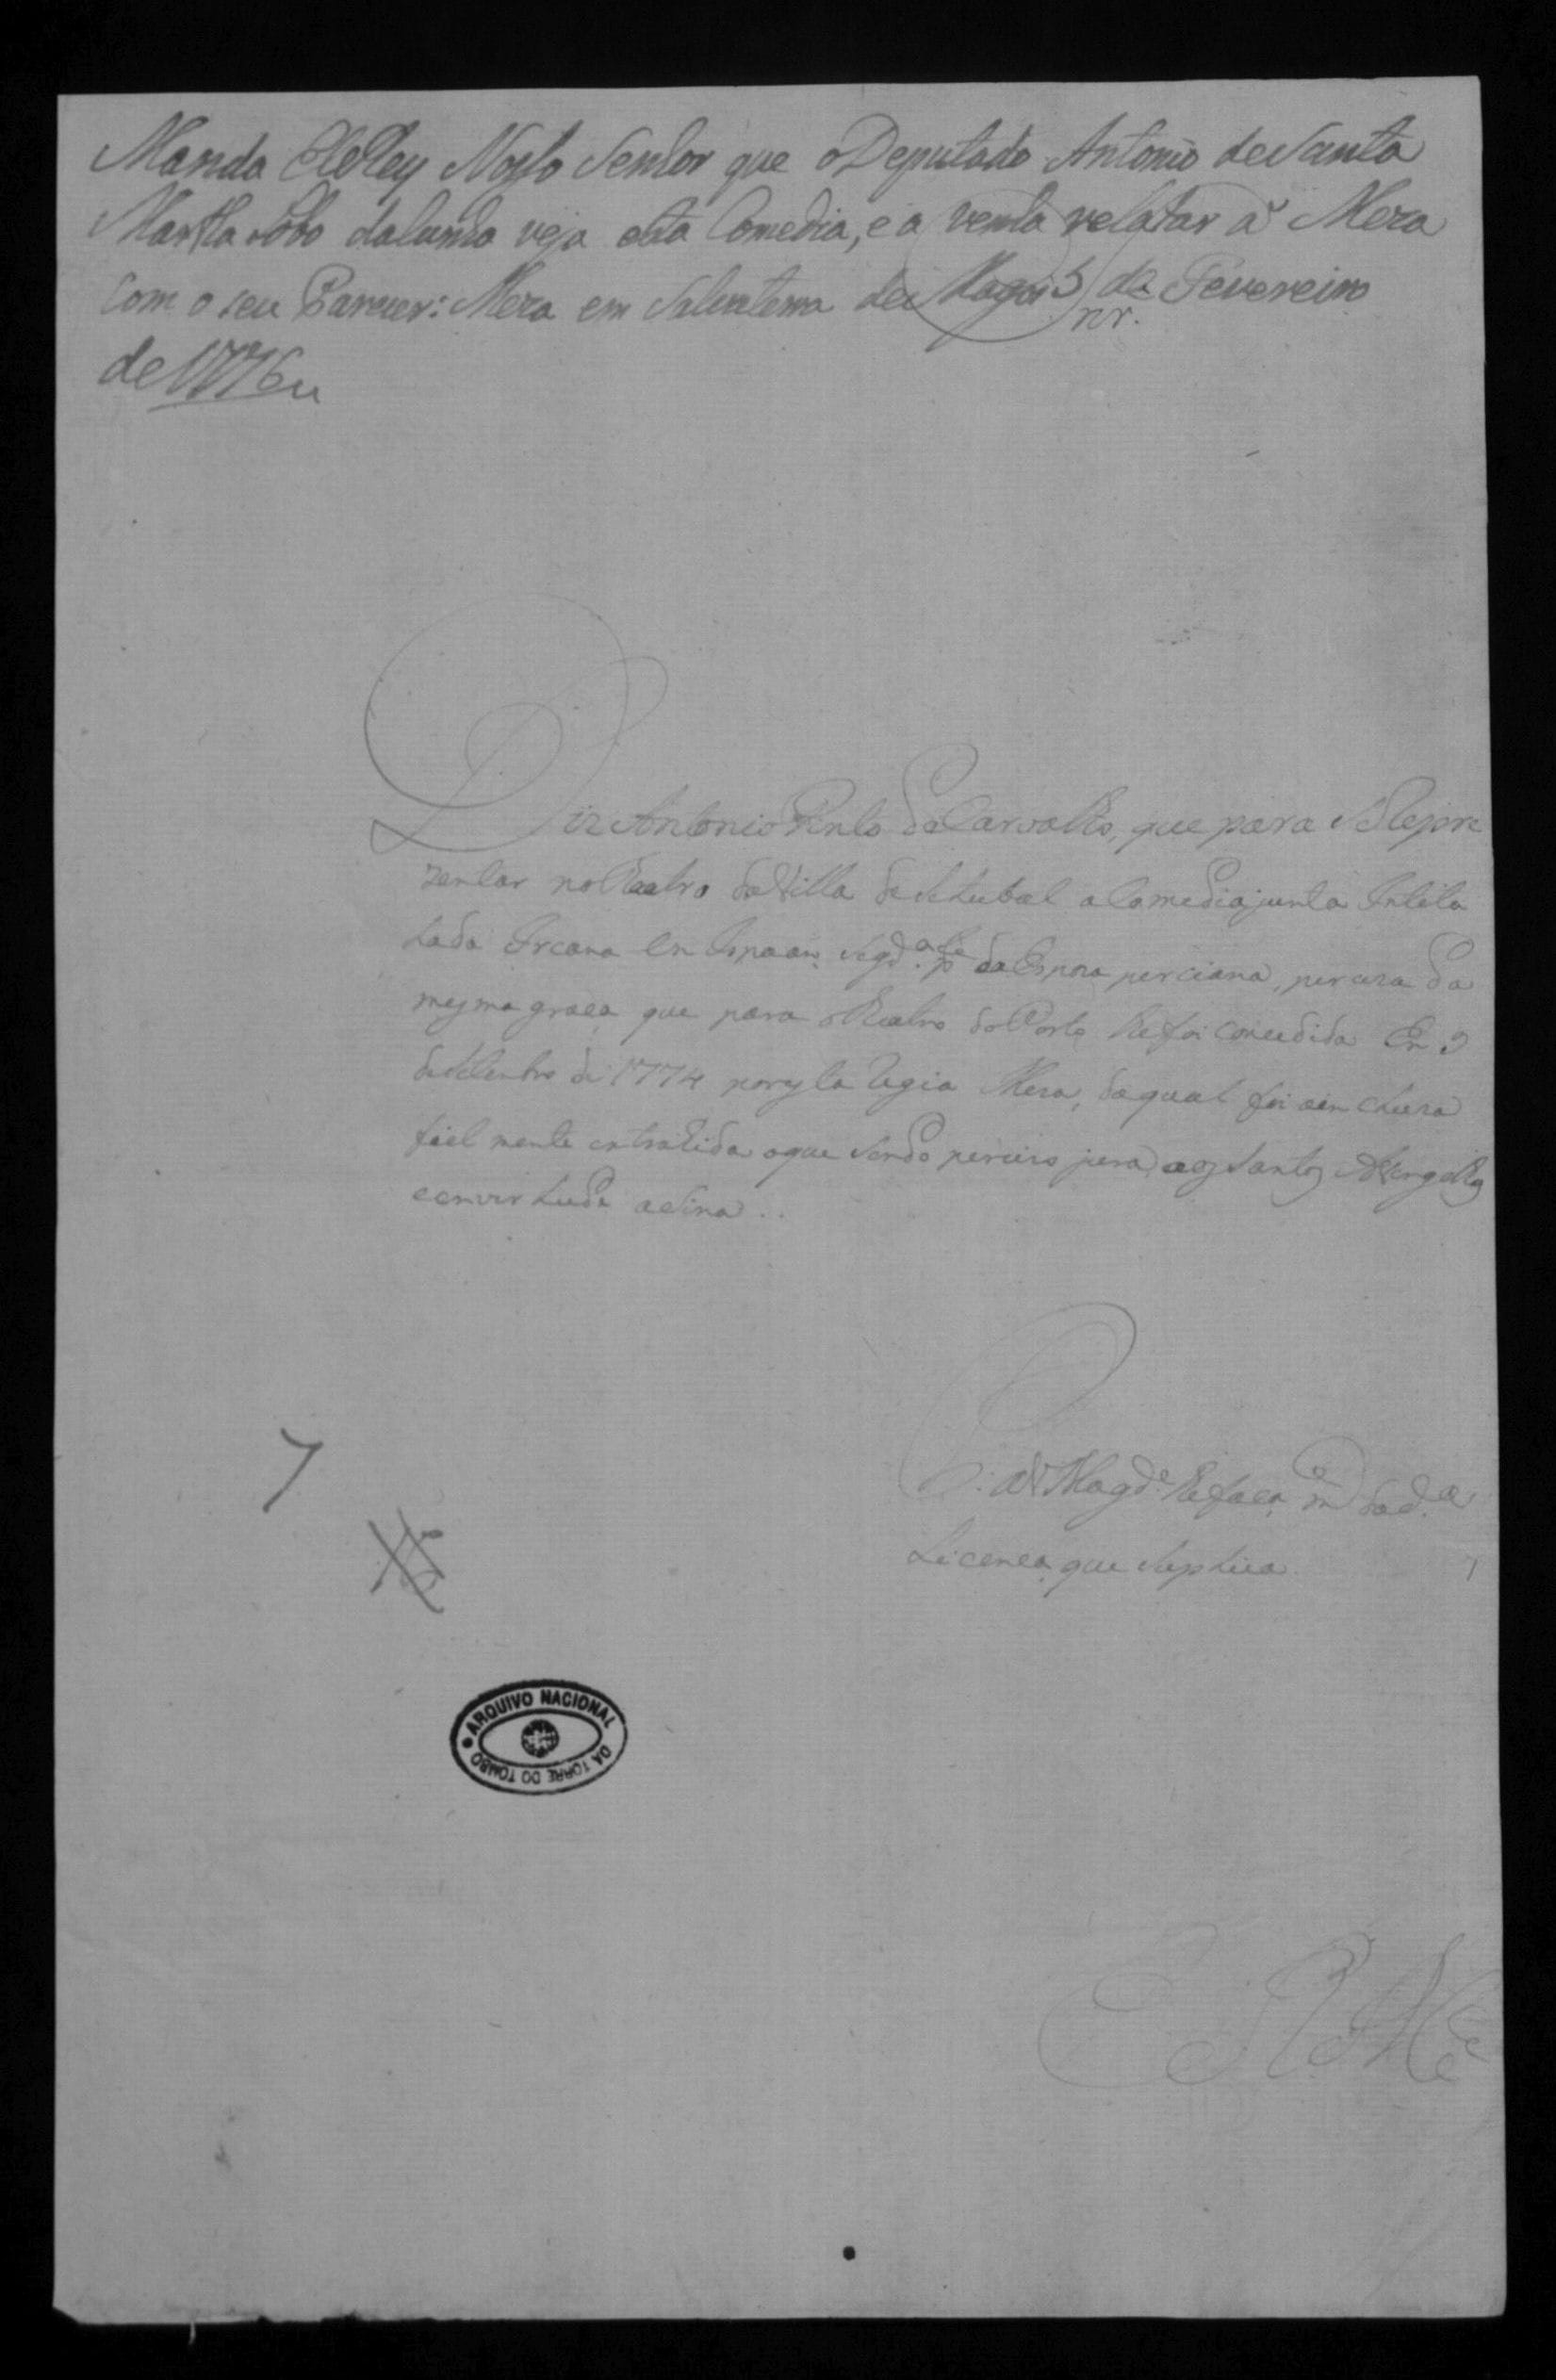 Manda ElRey Nosso Senhor que o Deputado Antonio de Santa
Martha Lobo da Cunha veja esta Comedia, e a venha relatar à Meza
com o seu Parecer: Meza em Salvaterra de Magos 5 de Fevereiro
de 1776
Diz Antonio Pinto de Carvalho, que para se Repre
zentar no Theatro da Villa de Setubal a Comedia junta Intitu
lada Ircana en Ispaan, segd.ª p.te da Espoza perciana, perciza da
mesma graça que para o Theatro do Porto lhe foi concedida Em 9
de Setenbro de 1774 por esta Regia Meza, da qual foi a en cluza
fiel mente extrahida o que sendo perciso jura aos Santos Avangelhos
e em vertude asina ..
P. a V Magd.e lhe faça m.ce da d.ª
Licença que Suplica
E. R. M.ce
7
ARQUIVO NACIONAL
DA TORRE DO TOMBO